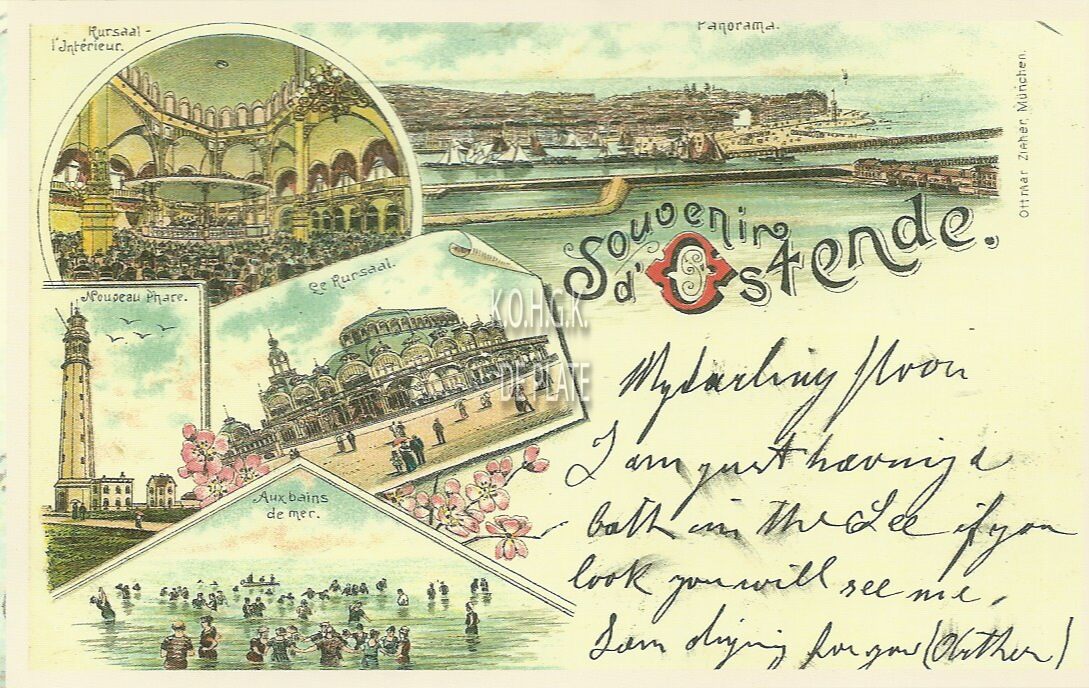 Kursaal -
l'Intérieur.
Panorama.
Ottmar Zieher, München.
Souvenir
d'Ostende.
Nouveau Phare.
Le Kursaal.
K.O.H.G.K.
DE PLATE
Aux bains
de mer.
My darling
I am just having a
bath in the See if you
look you will see me,
I am for you